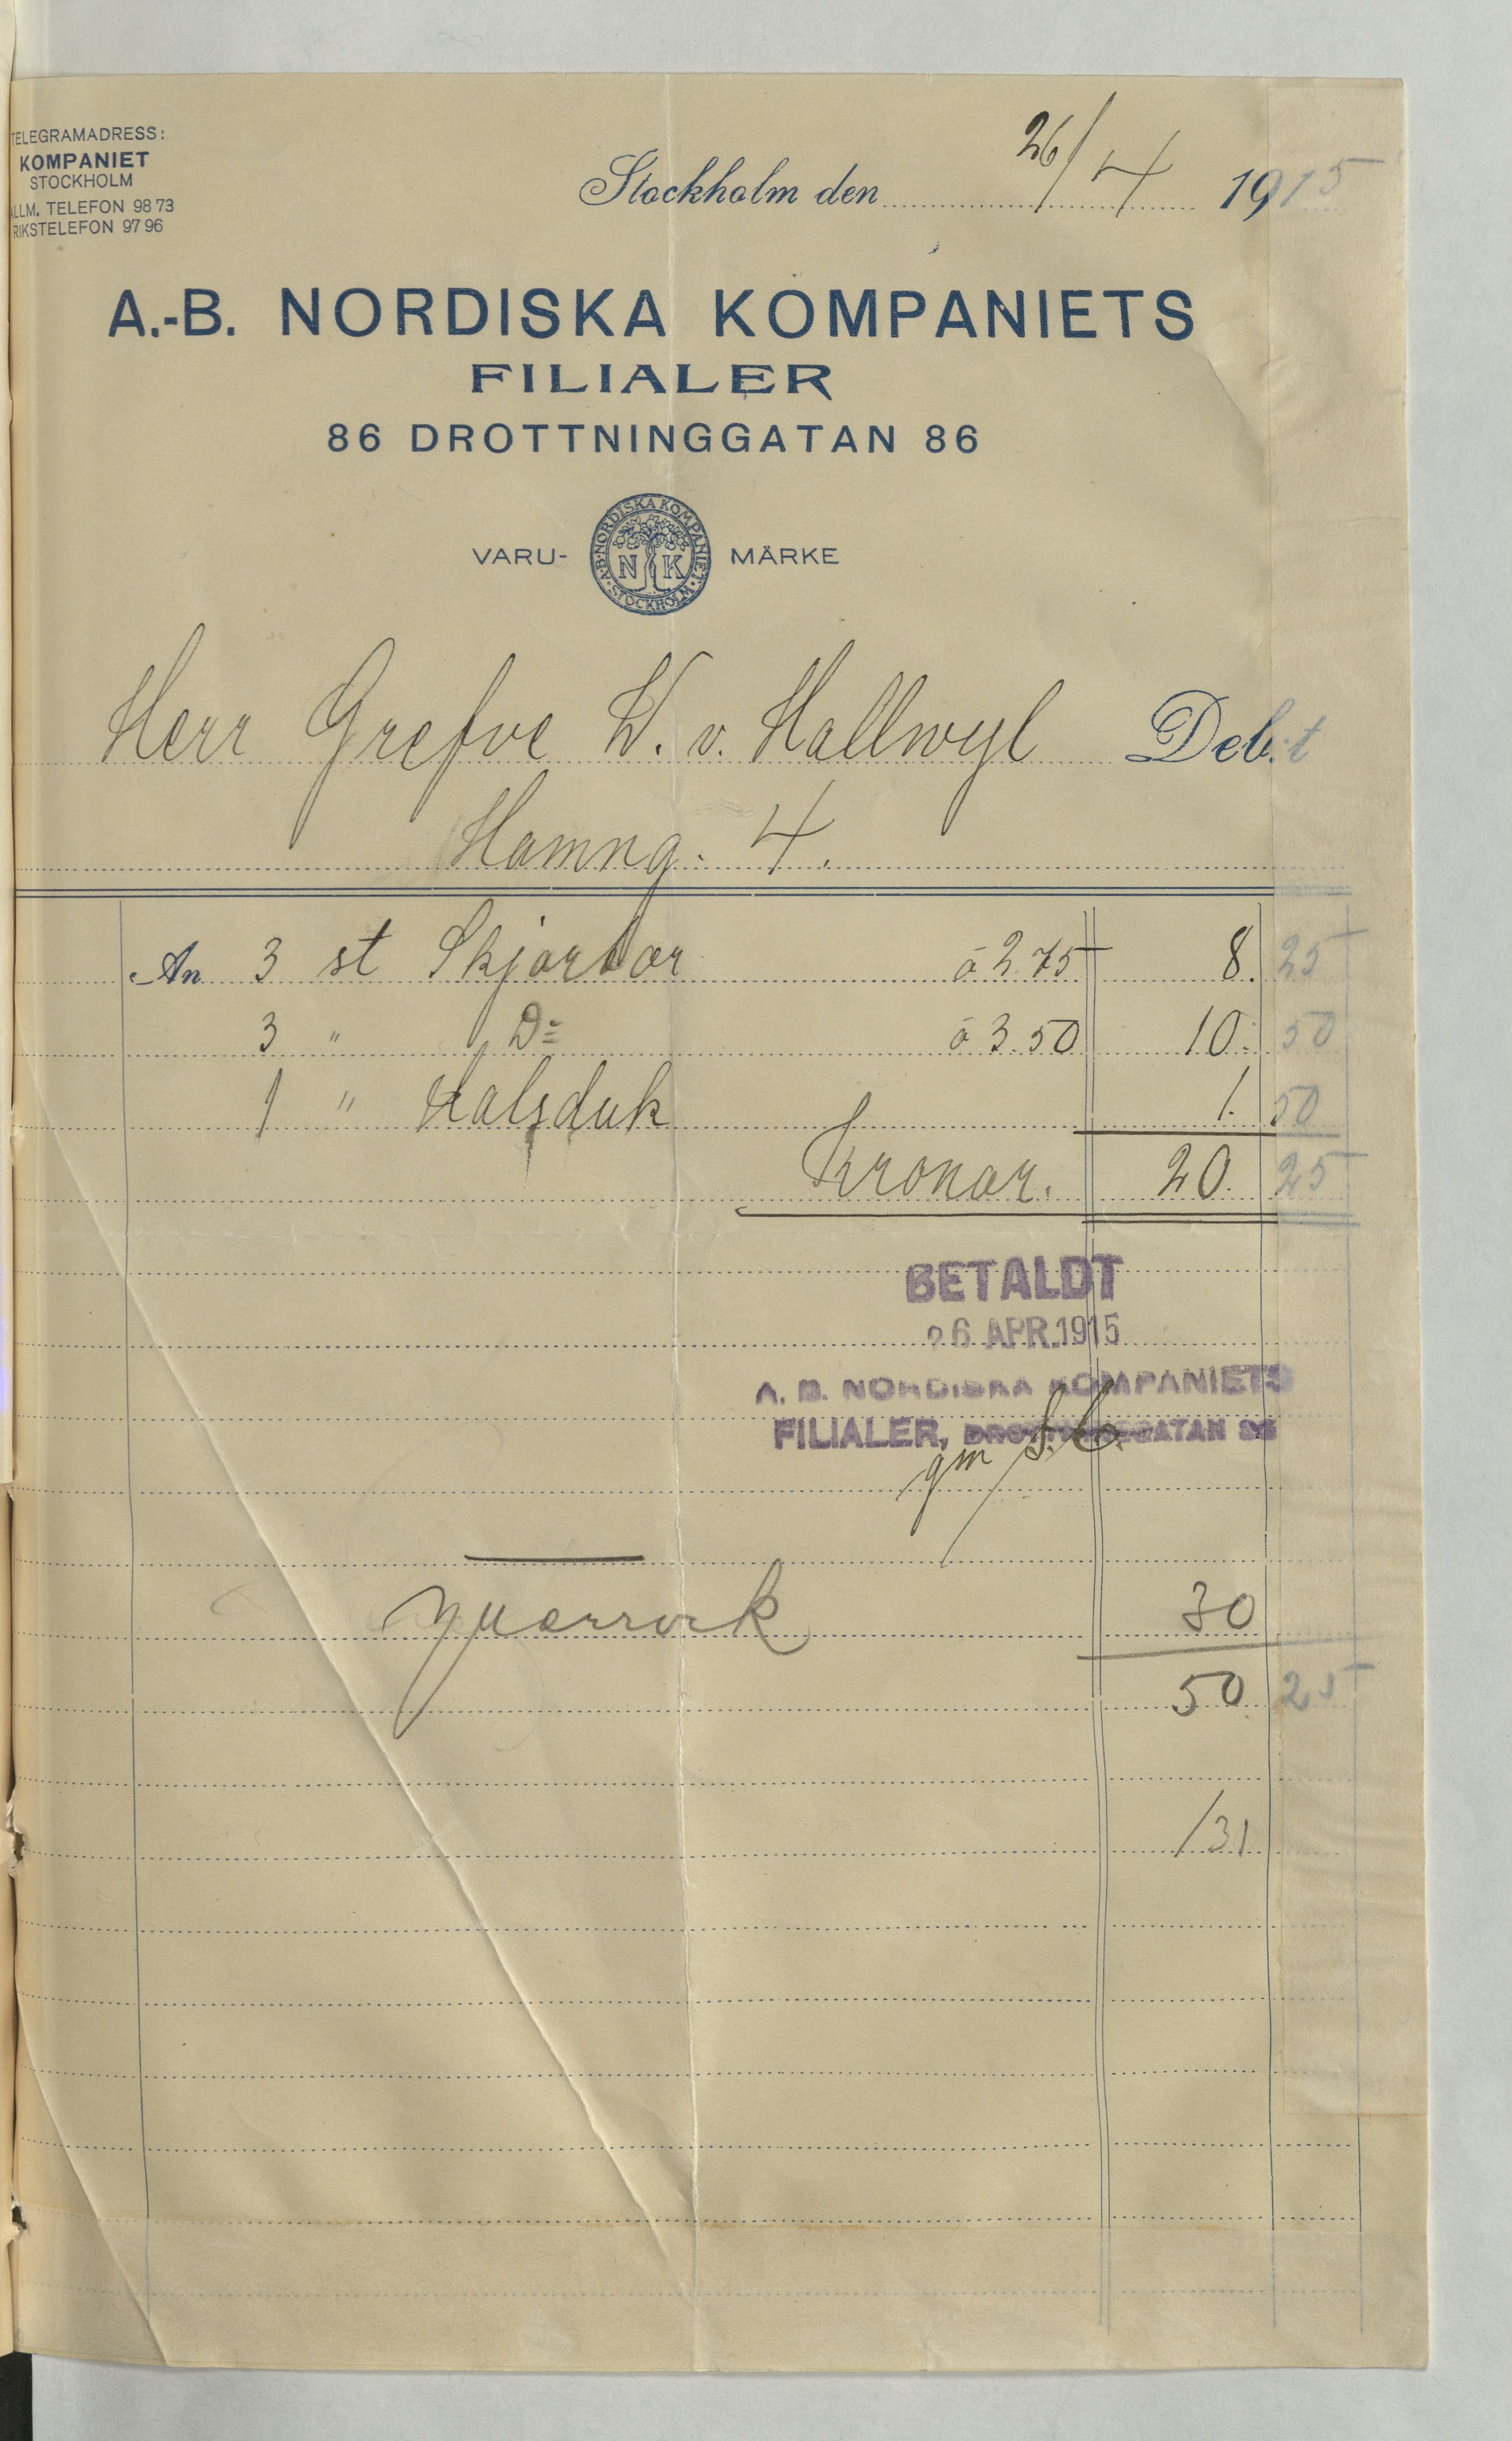 TELEGRAMADRESS:
KOMPANIET
STOCKHOLM
ALLM. TELEFON 98 73
RIKSTELEFON 97 96
Stockholm den 26/4 1915
A.-B. NORDISKA KOMPANIETS
FILIALER
86 DROTTNINGGATAN 86
VARU- MÄRKE
A.B. NORDISKA KOMPANIET. STOCKHOLM
N K
Herr Grefve W. v. Hallwyl Debet
Hamng. 4.
An 3 st Skjortor à 2.75 8. 25
3 " Do à 3.50 10. 50
1 " Halsduk 1. 50
Kronor. 20. 25
BETALDT
26 APR. 1915
A. B. NORDISKA KOMPANIETS
FILIALER, DROTTNINGGATAN 86
gm
30
50 25
/31